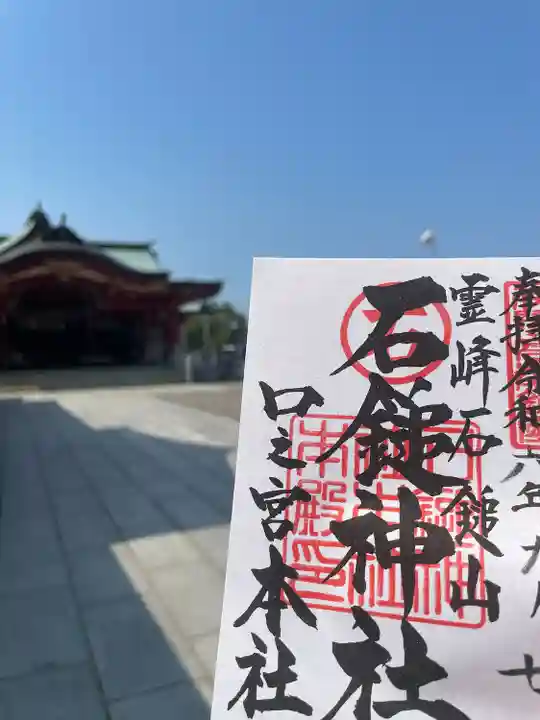 奉拝 令和六年九月七
霊峰石鎚山
石鎚神社
口之宮本社